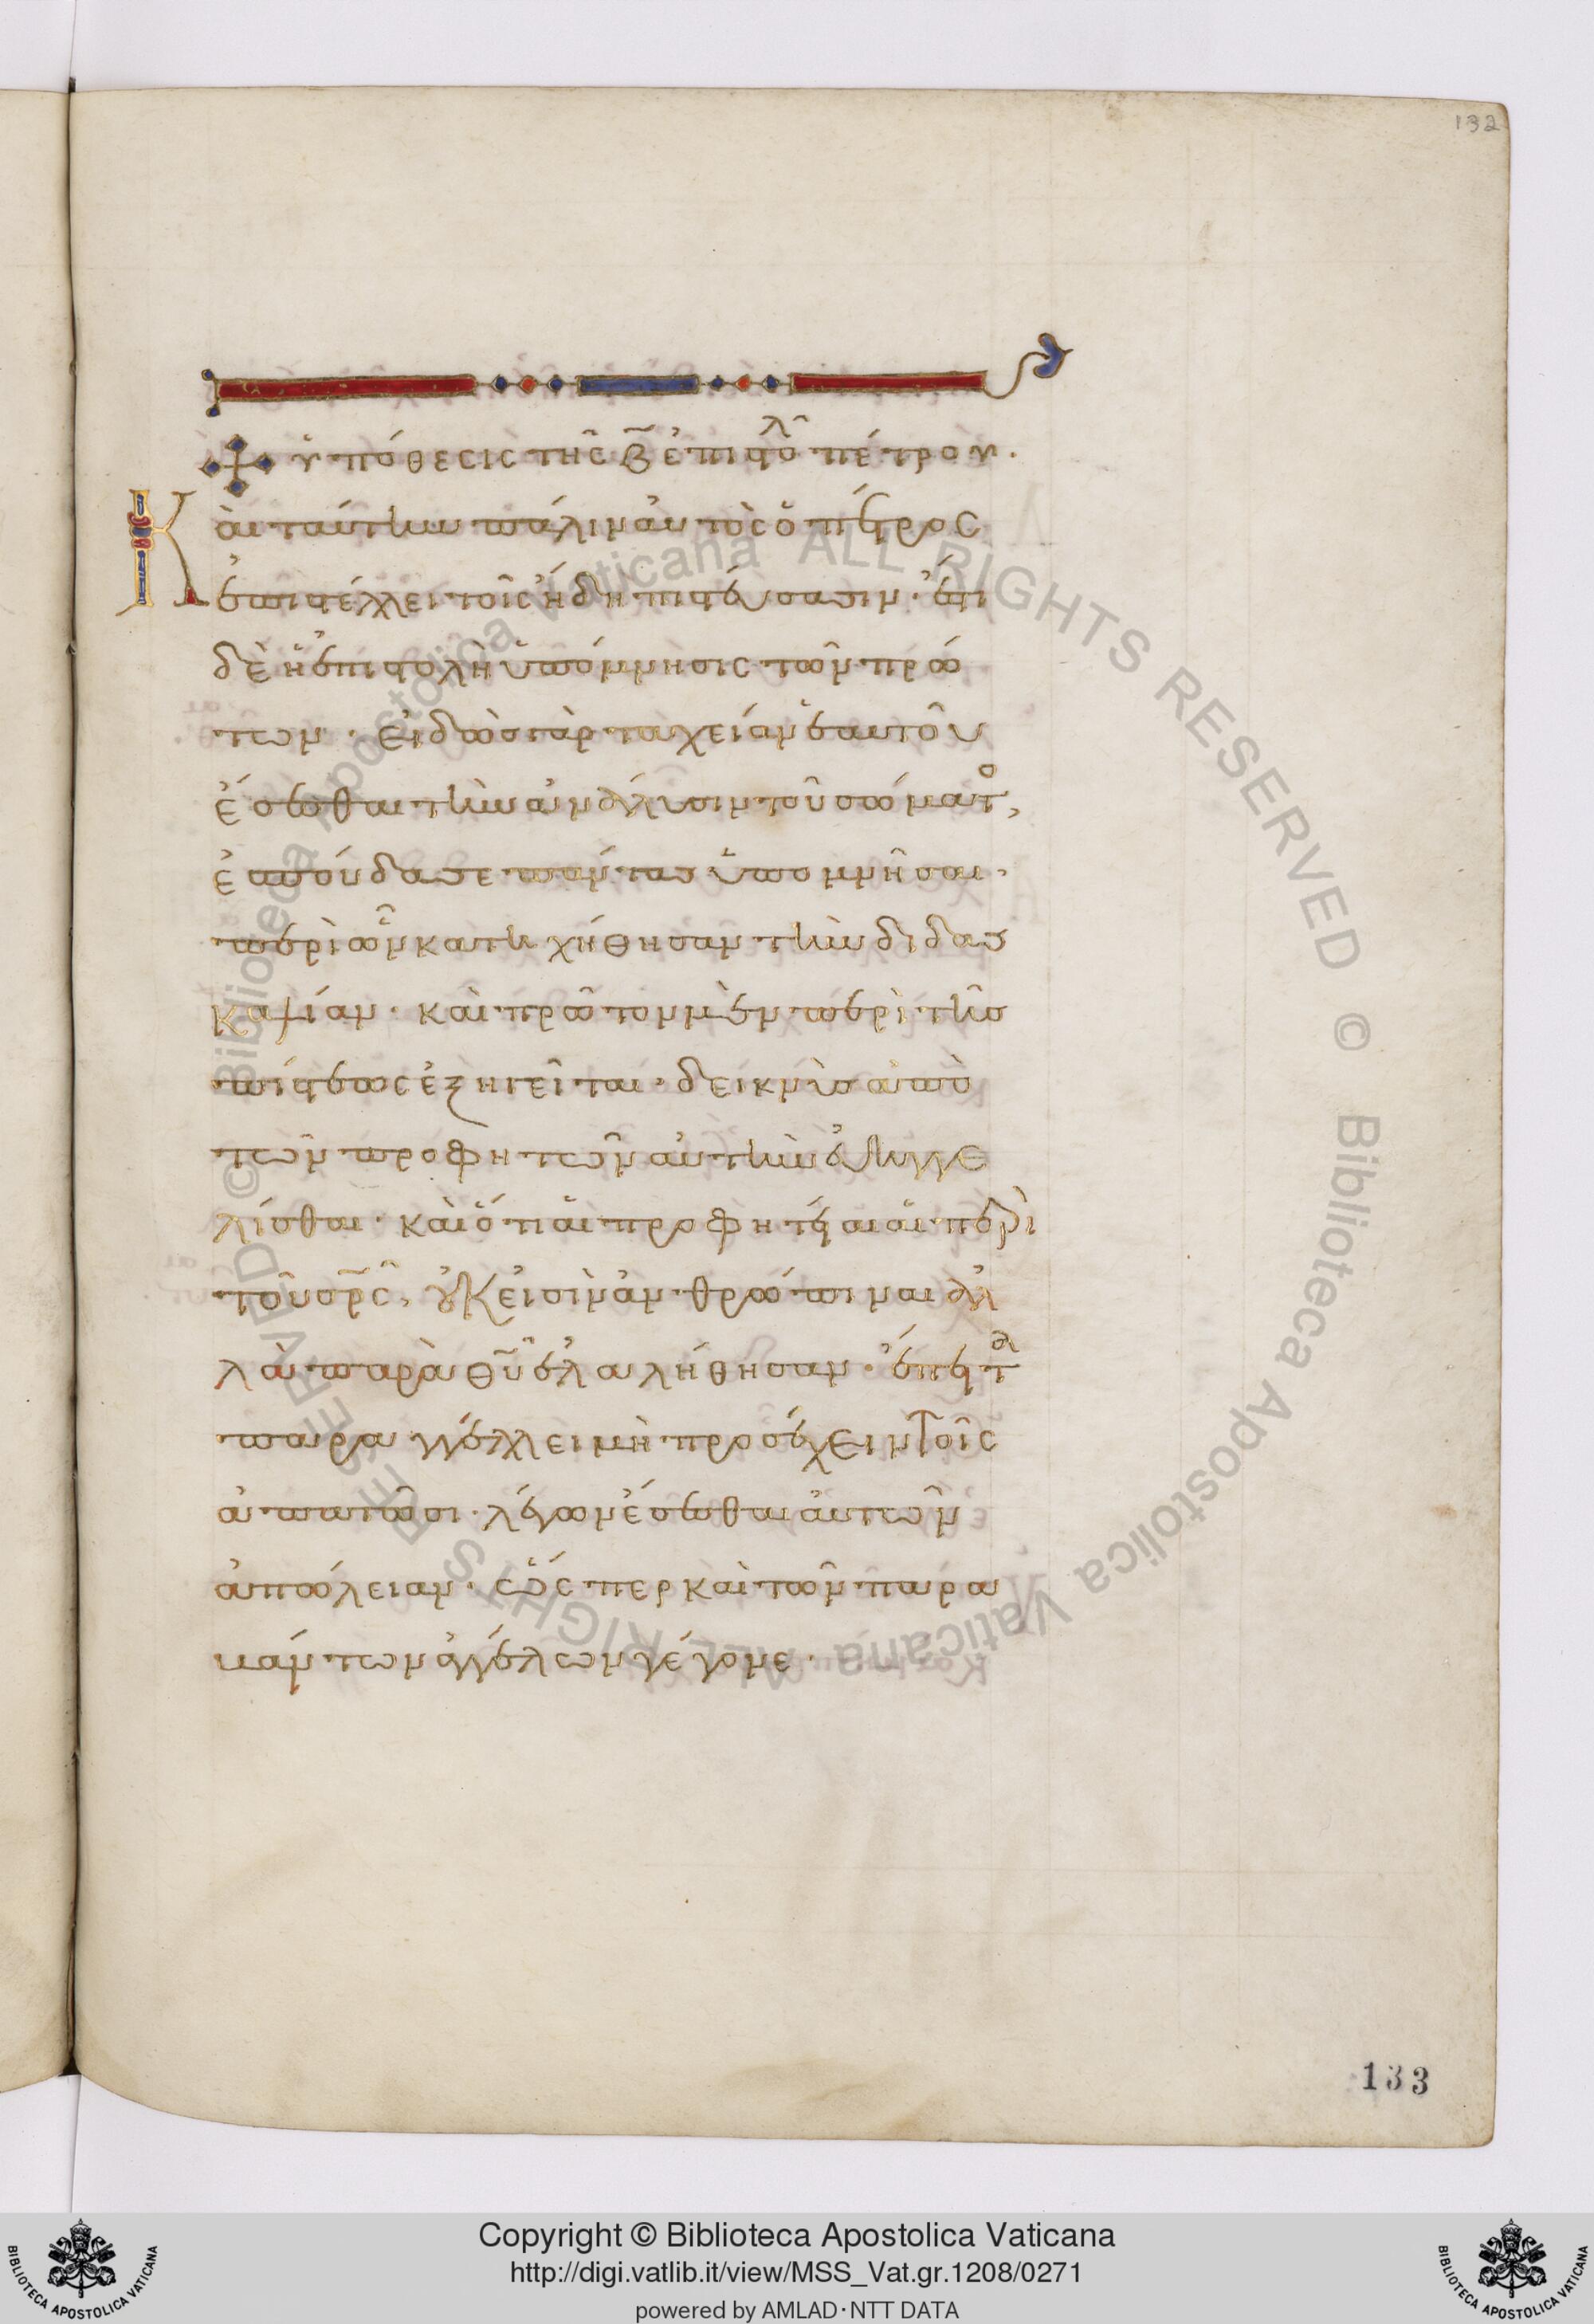 132
ὑπόθεσις τῆς β̅ ἐπιστολ πέτρου.
Καὶ ταύτην πάλιν αὐτὸς ὁ πέτρος
ἐπιστέλλει τοῖς ἤδη πιστεύσασιν· ἔστι
δὲ ἡ ἐπιστολὴ ὑπόμνησις τῶν πρώ
των· εἰδὼς γὰρ ταχείαν ἑαυτοῦ
ἔσεσθαι τὴν ἀνάλυσιν τοῦ σώματο,
ἐσπούδασε πάντας ὑπομνῆσαι·
περὶ ὧν κατηχήθησαν τὴν διδασ
καλίαν· καὶ πρῶτον μὲν περὶ τῆς
πίστεως ἐξηγεῖται· δεικνὺς ἀπὸ
τῶν προφητῶν αὐτὴν εὐηγγε
λίσθαι· καὶ ὅτι αἱ προφητείαι αἱ περὶ
τοῦ σρ̅ς, οὐκ εἰσὶν ἀνθρώπιναι ἀλ
λὰ παρὰ θ̅υ ἐλαλήθησαν· ἔπειτ
παραγγέλλει μὴ προσέχειν τοῖς
ἀπατῶσι· λέγων ἔσεσθαι αὐτῶν
ἀπώλειαν· ὥσπερ καὶ τῶν παρα
βάντων ἀγγέλων γέγονε·
133
Copyright © Biblioteca Apostolica Vaticana
http://digi.vatlib.it/view/MSS_Vat.gr.1208/0271
powered by AMLAD·NTT DATA
BIBLIOTECA APOSTOLICA VATICANA
BIBLIOTECA APOSTOLICA VATICANA
© Biblioteca Apostolica Vaticana ALL RIGHTS RESERVED © Biblioteca Apostolica Vaticana ALL RIGHTS RESERVED